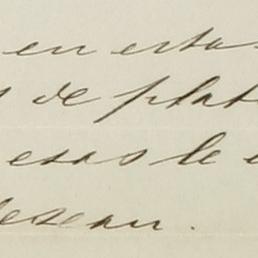 en estas
de plat
esas le
desean.